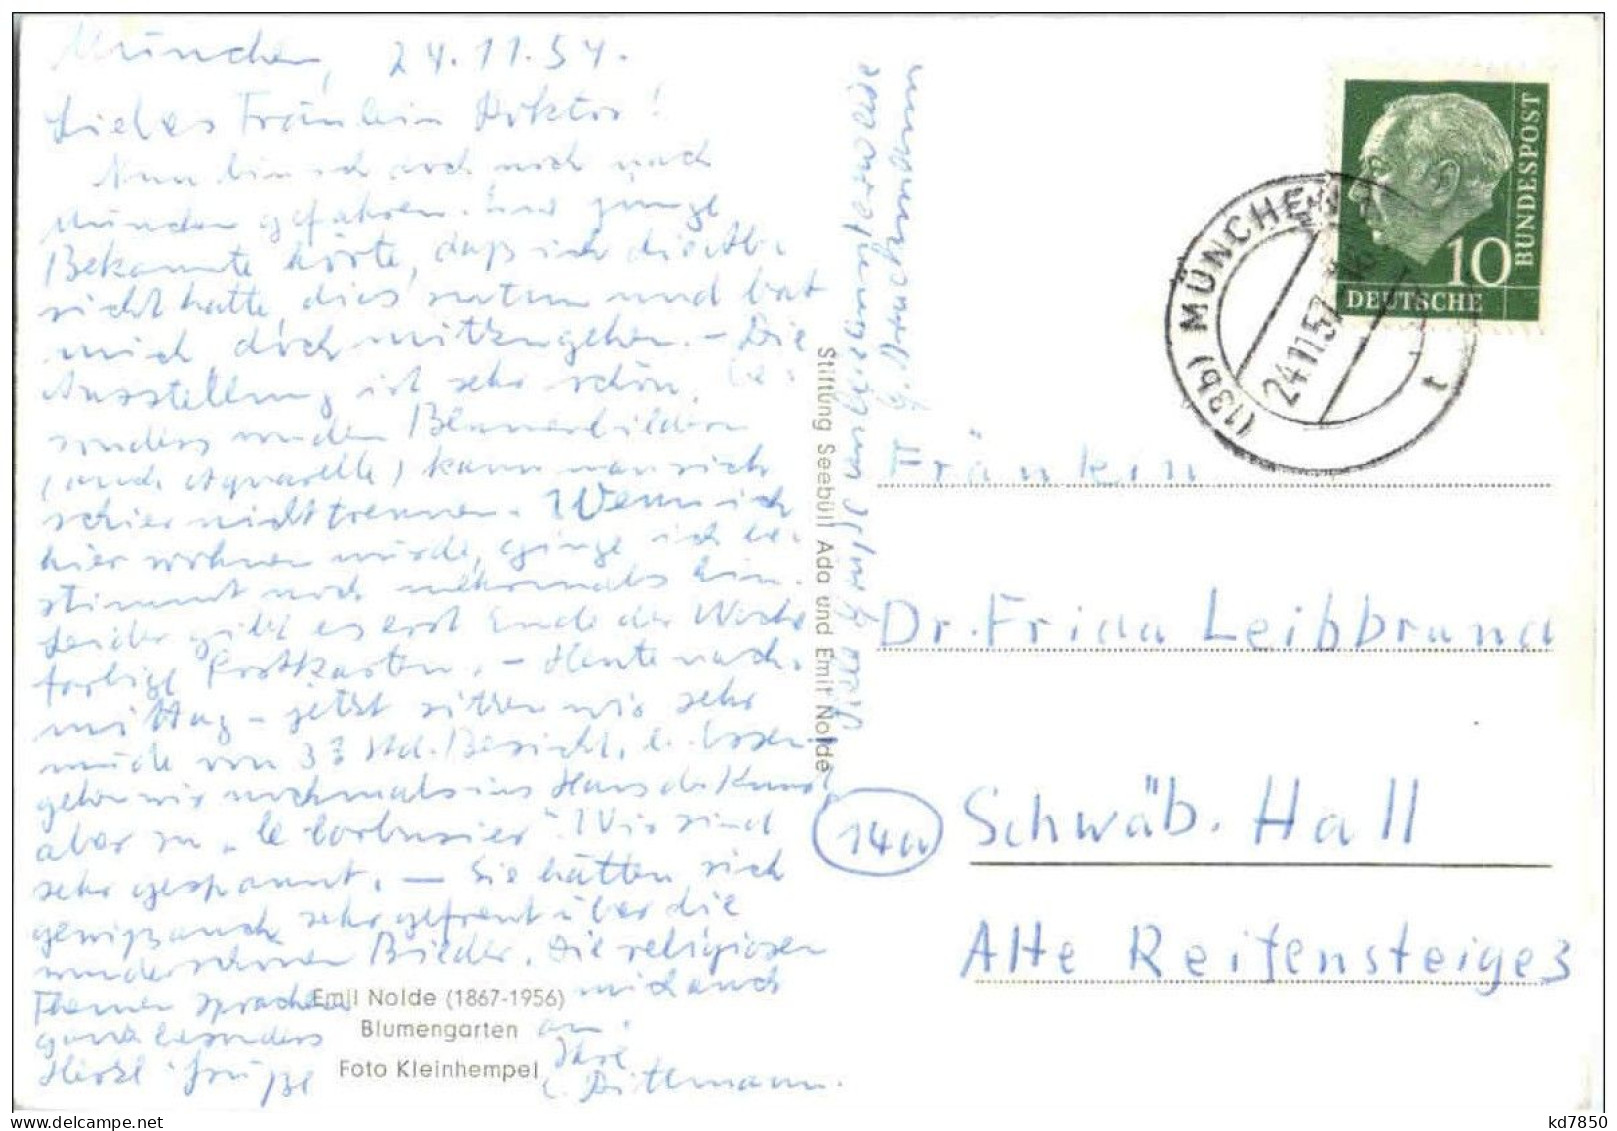 München, 24.11.57.
Liebes Fräulein Doktor!
Nun bin ich doch noch nach
München gefahren. Eine junge
Bekannte hörte, daß ich die Ab-
sicht hatte, dies zu tun und bat
mich doch mitzugehen. – Die
Ausstellung ist sehr schön, be-
sonders von den Blumenbildern
(und Aquarelle) kann man sich
schier nicht trennen. Wenn ich
hier wohnen würde, ginge ich be-
stimmt noch mehrmals hin.
Leider gibt es erst Ende der Woche
farbige Postkarten. – Heute nach-
mittag – jetzt sitzen wir sehr
müde von 3½ Std. Besicht. b. Essen
gehen wir nochmals ins Haus der Kunst,
aber zu „Le Corbusier“. Wir sind
sehr gespannt. – Sie hätten sich
gewiß auch sehr gefreut über die
wunderschönen Bilder. Die religiösen
Themen sprachen mich auch
ganz besonders an.
Herzl. Grüße Ihre
Dittmann.
Emil Nolde (1867-1956)
Blumengarten
Foto Kleinhempel
Stiftung Seebüll Ada und Emil Nolde
DEUTSCHE
BUNDESPOST
10
(13b) MÜNCHEN
24.11.57
t
Fräulein
Dr. Frida Leibbrand
14a Schwäb. Hall
Alte Reifensteige 3